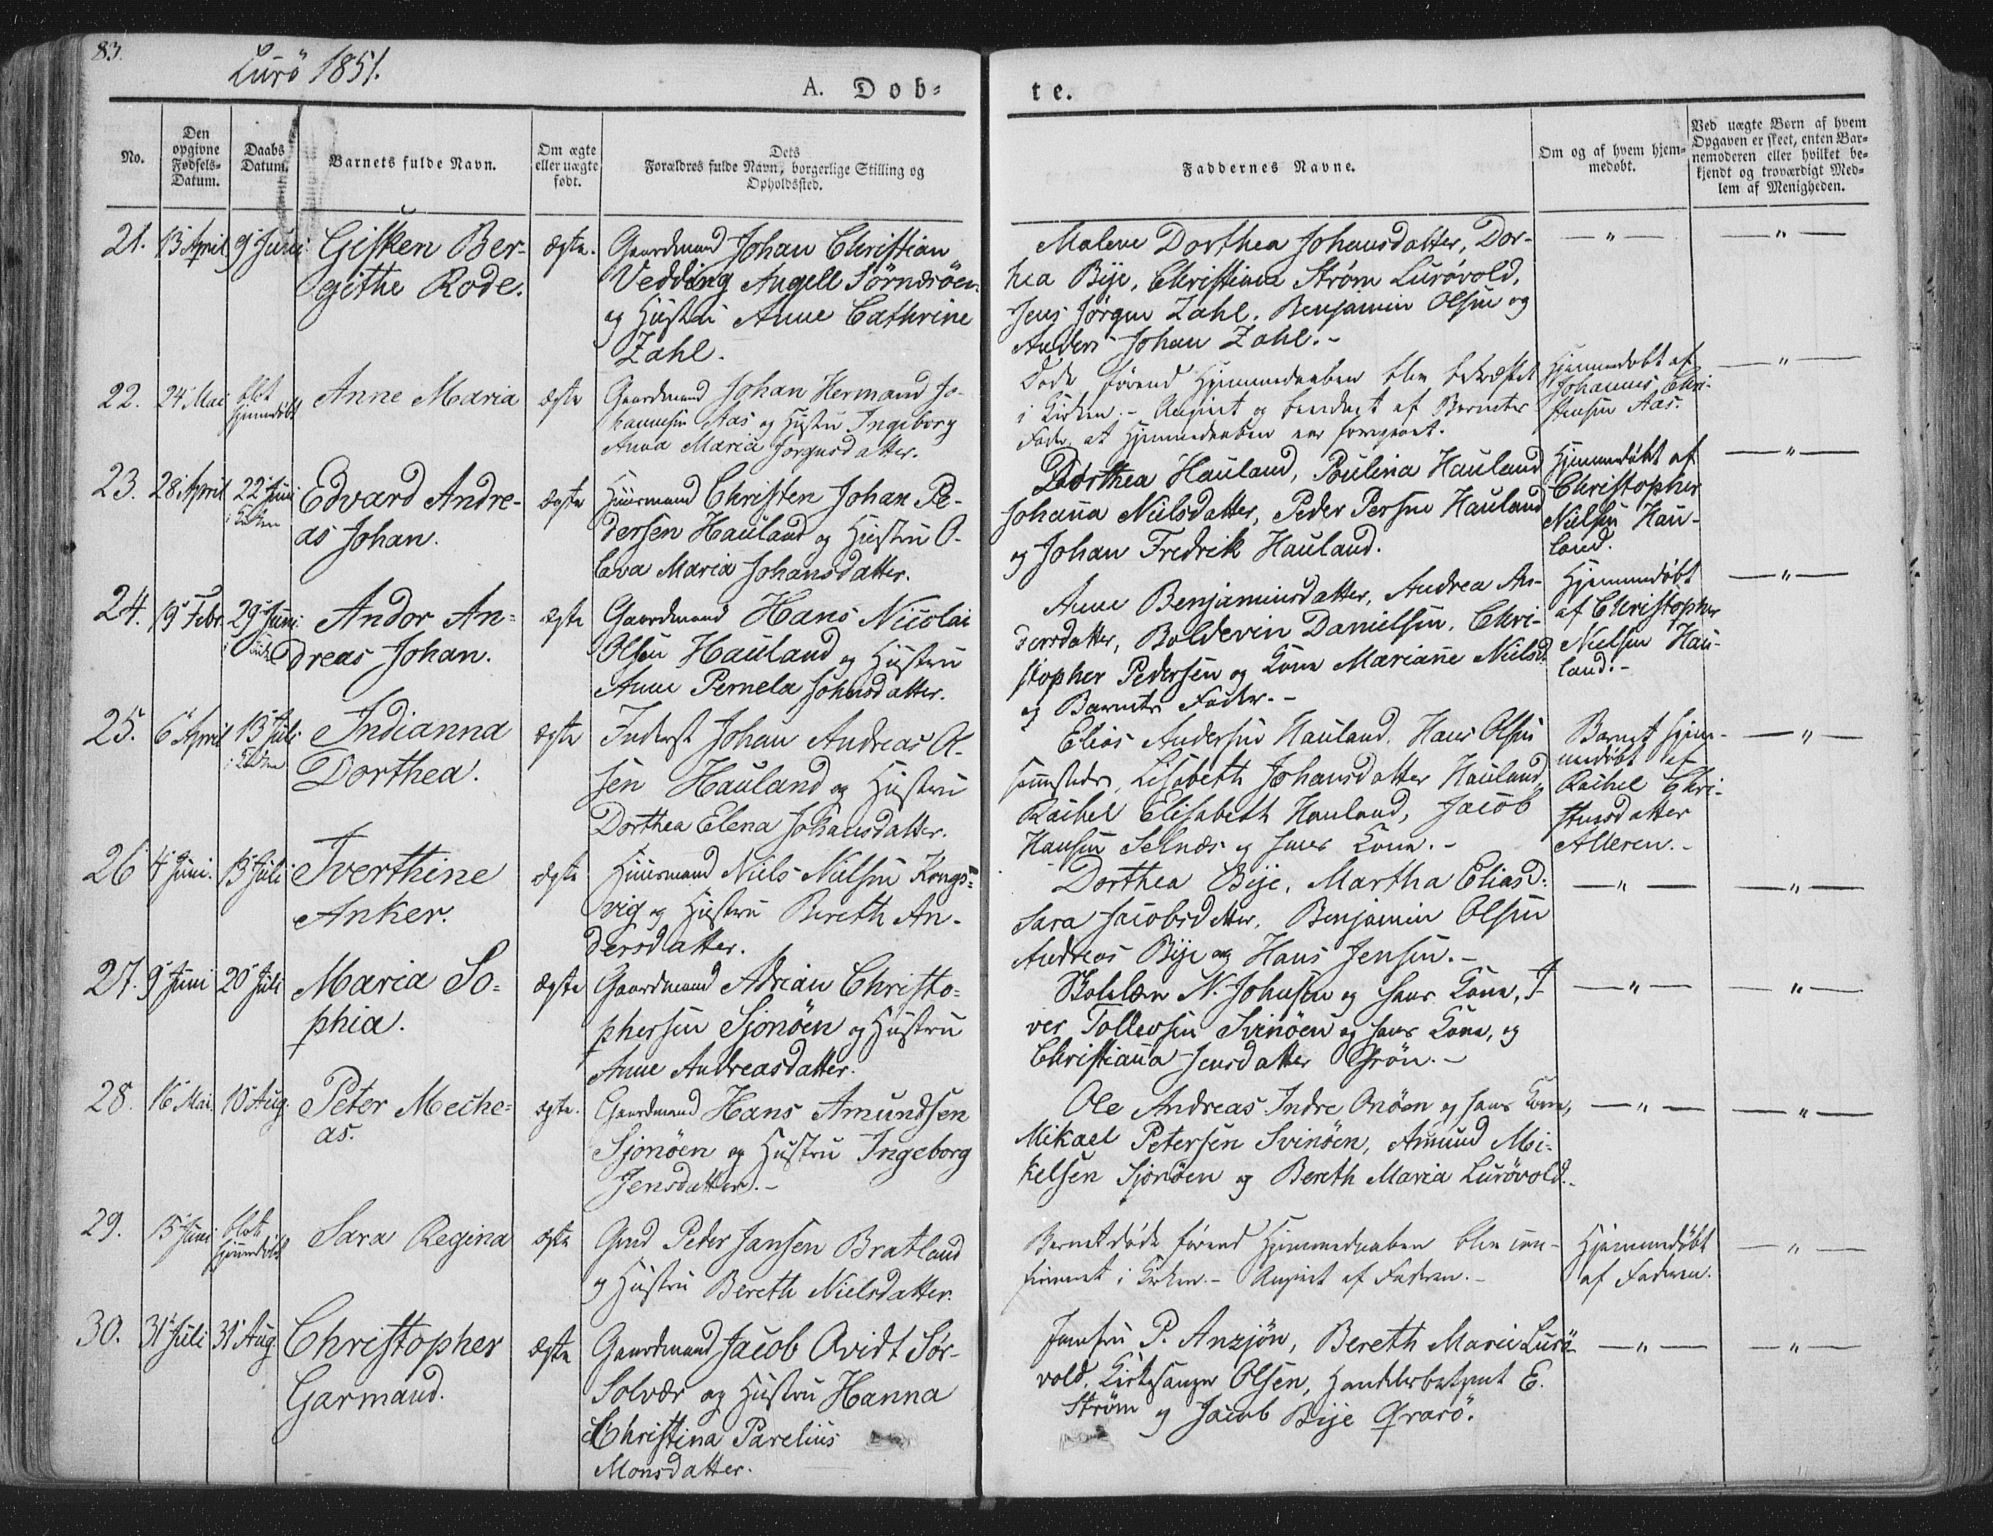 83.
Lurö 1851.
A. Döb-
te.
No.
Den opgivne Fødsels-Datum.
Daabs Datum.
Barnets fulde Navn.
Om ægte eller uægte født.
Dets Forældres fulde Navn, borgerlige Stilling og Opholdssted.
Faddernes Navne.
Om og af hvem hjem-medøbt.
Ved uægte Børn af hvem Opgaven er skeet, enten Bar-nemoderen eller hvilket be-kjendt og troværdigt Med-lem af Menigheden.
21. 13 April 9 Juni Gisken Ber-
githe Rode.
ægte.
Gaardmand Johan Christian
Vedding Angell Sörneröen
og Hustru Anne Cathrine
Zahl.
Malene Dorthea Johansdatter, Dor-
hea Bije, Christiana Strøm Lurövold,
Jens Jörgen Zahl, Benjamin Olsen og
Anders Johan Zahl. -
— " —
— " —
22. 24 Mai blot
hjemmedöbt
Anne Maria
ægte
Gaardmand Johan Hermand Jo-
hannesen Aas og Hustru Ingeborg
Anna Maria Jörgensdatter.
Döde förend Hjemmedaaben blev bekræftet
i Kirken. - Angivet og bevidnet af Barnets
Fader, at Hjemmedaaben var foregaaet.
Hjemmedöbt af
Johannes Chri-
stensen Aas.
— " —
23. 28 April 22 Juni
i Kirken
Edvard Andre-
as Johan.
ægte
Huusmand Christen Johan Pe-
dersen Hauland og Hustru O-
lava Maria Johansdatter.
Dorthea Hauland, Poulina Hauland
Johanna Nielsdatter, Peder Persen Hauland
og Johan Fredrik Hauland.
Hjemmedöbt af
Christopher
Nielsen Hau-
land.
— " —
24. 19 Febr. 29 Juni
i Kirken
Andor An-
dreas Johan.
ægte
Gaardmand Hans Nicolai
Olsen Hauland og Hustru
Anne Pernela Johnsdatter.
Anne Benjaminsdatter, Andrea An-
dersdatter, Boldevin Danielsen, Chri-
stopher Pedersen og Kone Marianne Nielsd.
og Barnets Fader. -
Hjemmedöbt
af Christopher
Nielsen Hau-
land. -
— " —
25. 6 April 13 Juli
i Kirken
Indianna
Dorthea.
ægte
Inderst Johan Andreas Ol-
sen Hauland og Hustru
Dorthea Elena Johansdatter.
Elias Andersen Hauland, Hans Olsen
sammesteds, Lisabeth Johansdatter Hauland,
Rachel Elisabeth Hauland, Jacob
Hansen Selnæs og hans Kone. -
Barnet hjem-
medöbt af
Rachel Chri-
stensdatter
Alteren. -
— " —
26 4 Juni. 13 Juli Iverthine
Anker.
ægte
Huusmand Niels Nielsen Kongs-
vig og Hustru Bereth An-
dersdatter.
Dorthea Bije, Martha Eliasd:
Sara Jacobsdatter, Benjamin Olsen
Andreas Bije og Hans Jensen. -
— " —
— " —
27. 9 Juni 20 Juli Maria So-
phia.
ægte
Gaardmand Adrian Christo-
phersen Sjonöen og Hustru
Anne Andreasdatter.
N. Johnsen og hans Kone, I-
ver Tollevsen Svinöen og hans Kone, og
Christianna Jensdatter Grön. -
— " —
— " —
28. 16 Mai 10 Aug. Peter Meche-
as.
ægte.
Gaardmand Hans Amundsen
Sjonöen og Hustru Ingeborg
Jensdatter. -
Ole Andreas Indre Onöen og hans Kone,
Mikael Petersen Svinöen, Amund Mi-
kelsen Sjonöen og Bereth Maria Lurövold. -
— " —
— " —
29. 15 Juni blot
hjemmedöbt
Sara Regina
ægte
Gmd Peder Jansen Bratland
og Hustru Bereth Nielsdatter.
Barnet döde förend Hjemmedaaben blev con-
firmeret i Kirken. - Angivet af Faderen. -
Hjemmedöbt
af Faderen.
— " —
30. 31 Juli 31 Aug. Christopher
Garmand.
ægte
Gaardmand Jacob Qvidt Sör-
Solvær og Hustru Hanna
Christina Parelius
Monsdatter.
Jomfru P. Anzjön, Bereth Marie Lurö-
vold, Kirkesanger Olsen, Handelsbetjent E.
Ström og Jacob Bije Qvarö.
— " —
— " —